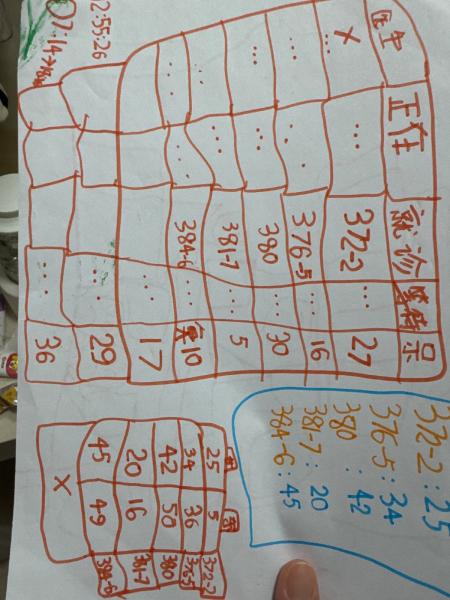 12:55:26
07:14→
正在 就诊
X … 372-2 … 27
… … 376-5 … 16
… … 380 … 30
… … 381-7 … 5
… … 384-6 … 10
… 17
… 29
… 36
372-2:25
376-5:34
380:42
381-7:20
384-6:45
25 5 372-2
34 36 376-5
42 50 380
20 16 381-7
45 49 384-6
X